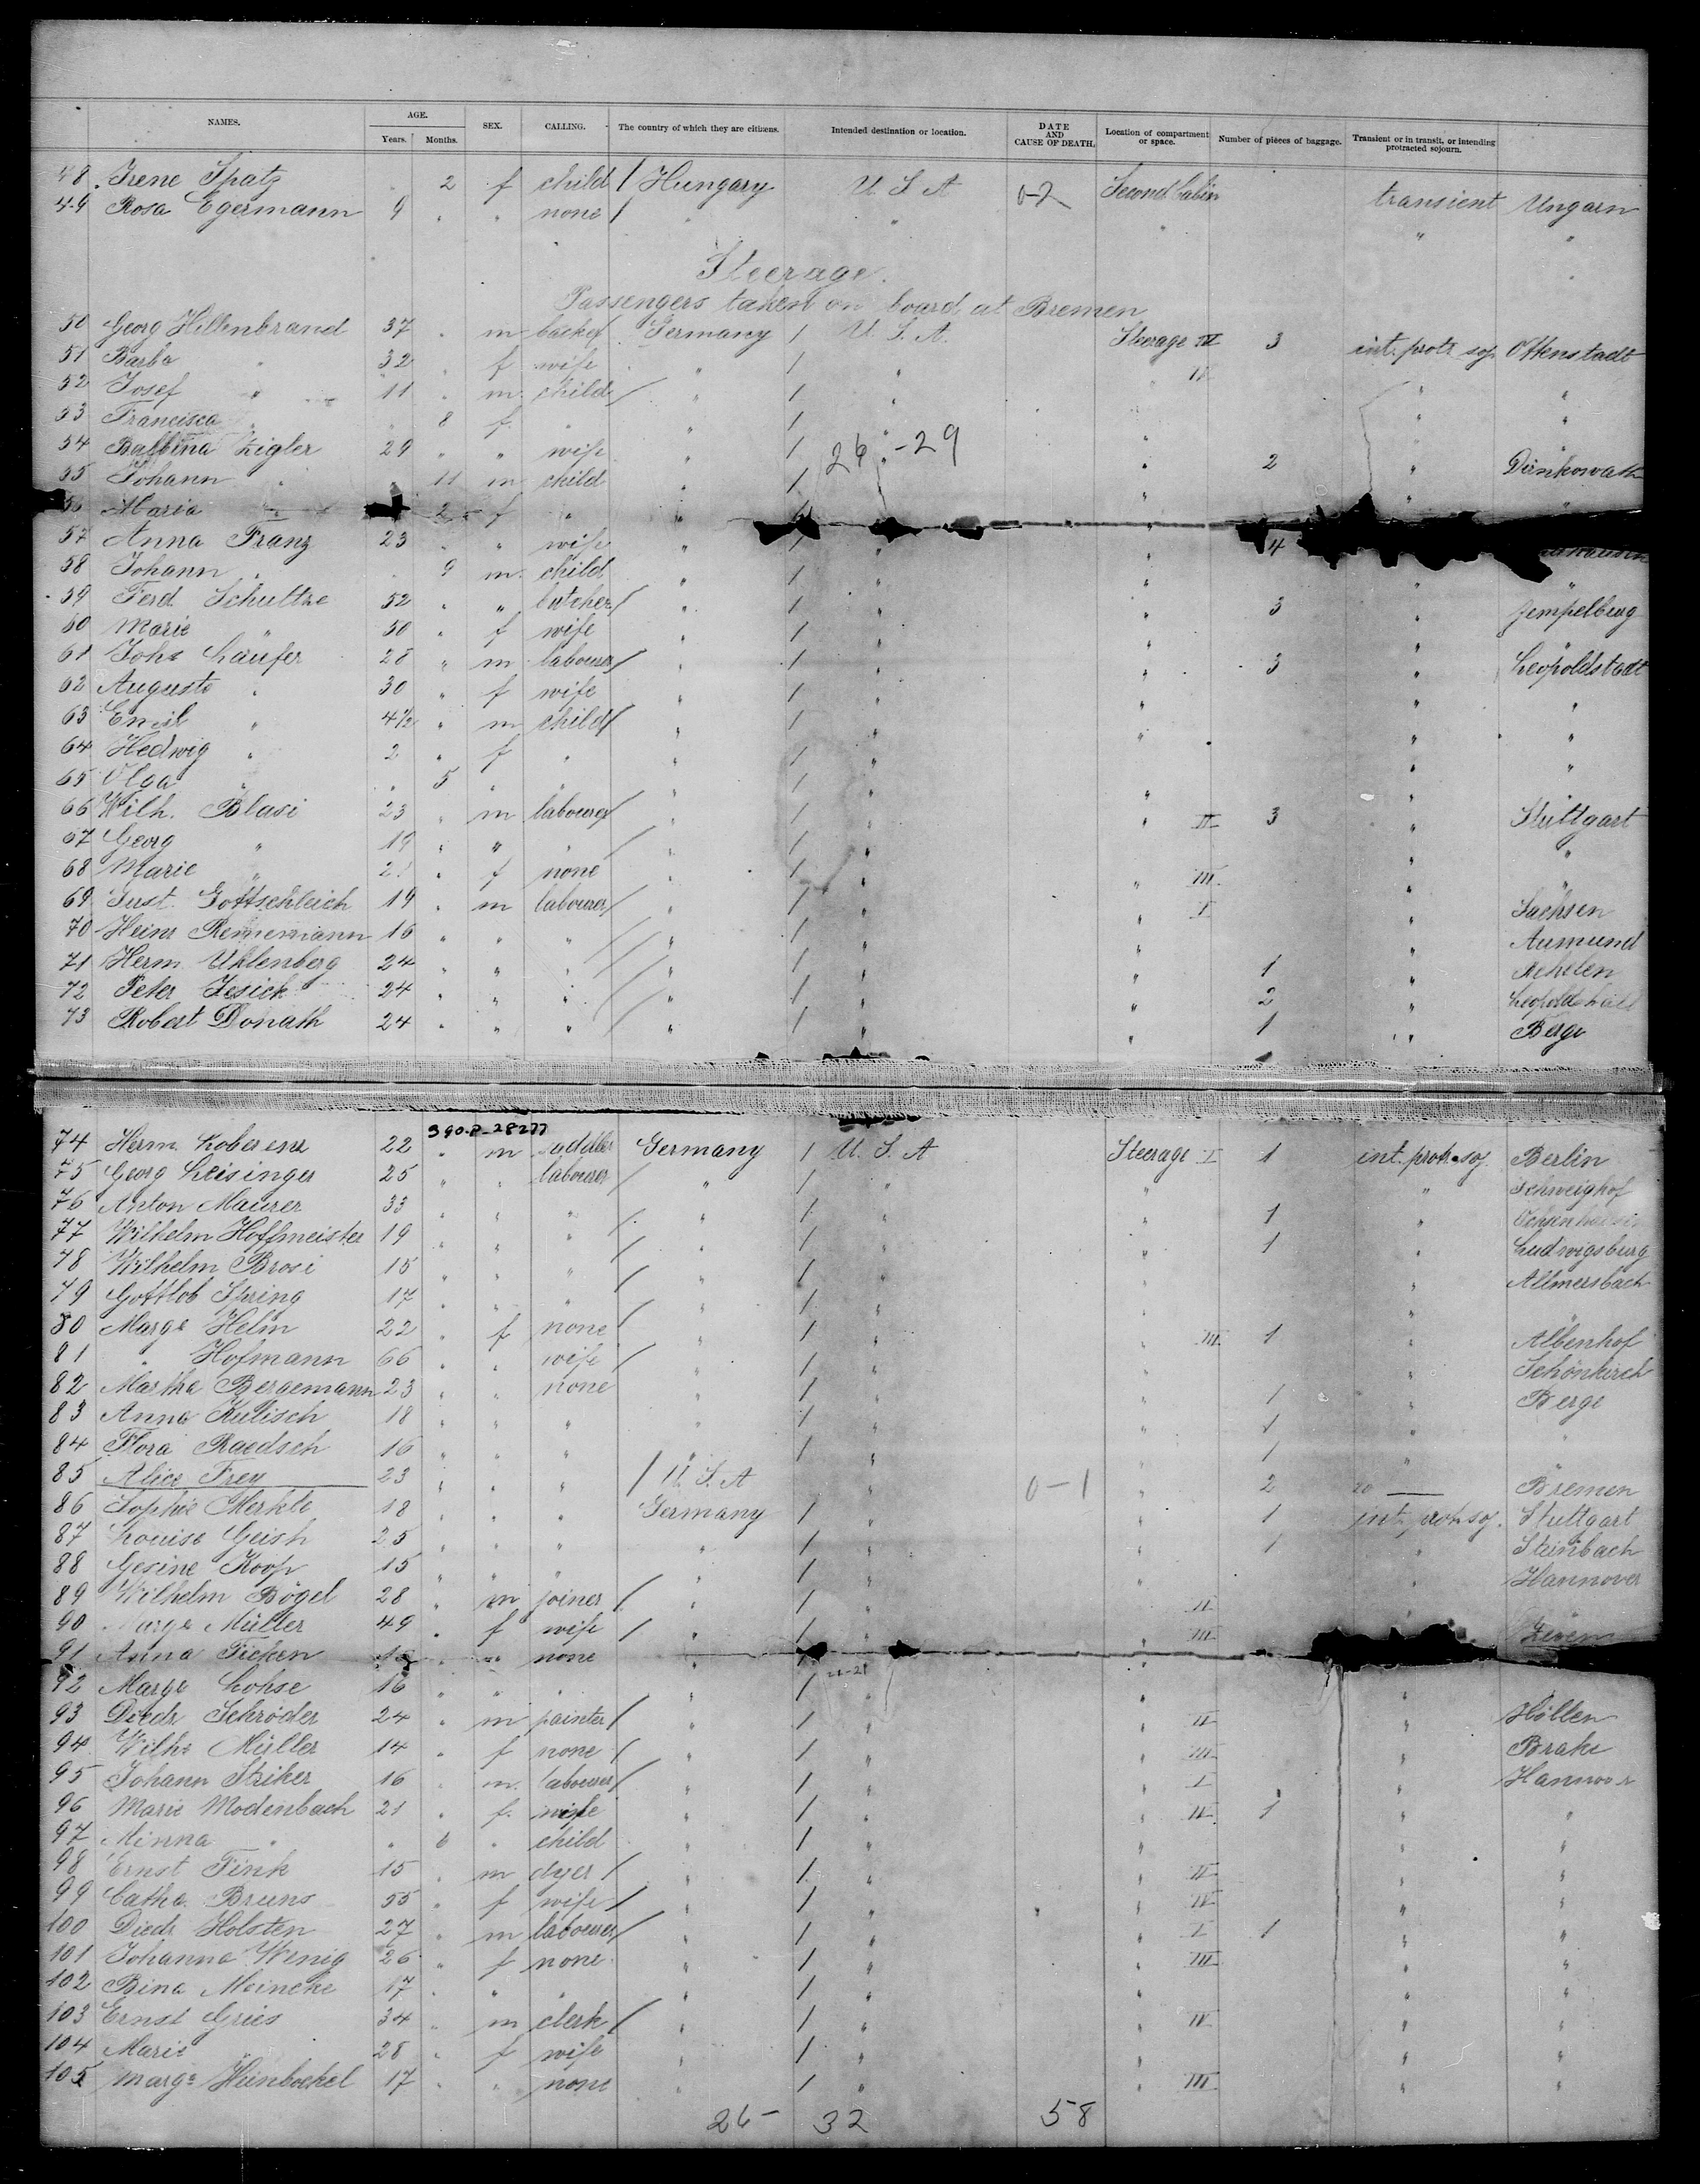 NAMES. AGE. Years. Months. SEX. CALLING. The country of which they are citizens. Intended destination or location. DATE AND CAUSE OF DEATH. Location of compartment or space. Number of pieces of baggage. Transient or in transit, or intending protracted sojourn.
48 Irene Spatz 2 f child / Hungary U. S. A 0-2 Second Cabin transient Ungarn
49 Rosa Egermann 9 " " none / " " " " "
Steerage.
Passengers taken on board at Bremen
50 Georg Hillenbrand 37 " m Germany / U. S. A. Steerage IV 3 int. protr soj. Ottenstadt
51 Barba " 32 " f wife " / " IV " "
52 Josef " 11 " m. child / " / " " "
53 Francisca " 8 f. " " / " " " "
54 Balbina Zigler 29 " " wife " / 26 - 29 " 2 "
55 Johann " 11 m child " / " " " "
56 Maria 2 f " " "
57 Anna Franz 23 " " wife " / " " 4
58 Johann " 9 m. child " / " " " "
59 Ferd Schultze 52 " " butcher / " / " " 3 " Zempelburg
60 Marie " 50 " f wife " / " " " "
61 Johs Laufer 28 " m labourer / " / " " 3 " Leopoldstadt
62 Auguste " 30 " f wife " / " " " "
63 Emil " 4½ " m child / " / " " " "
64 Hedwig " 2 " f " " / " " "
65 Olga " 5 " " " / " " " "
66 Wilh. Blasi 23 " m labourer / " / " " II 3 " Stuttgart
67 Georg " 19 " " " / " / " " "
68 Marie " 21 " f none " / " " III. " "
69 Gust. Gottschleich 19 " m labourer / " / " " I " Sachsen
70 Heinr Remermann 16 " " " / " / " " " Aumund
71 Herm Uhlenberg 24 " " " / " / " " 1 "
72 Peter Jesich 24 " " " / " / " " 2 " Leopoldshall
73 Robert Donath 24 " " " / " / " " 1 " Berge
390.P-28277
74 Herm. 22 " m saddler Germany / U. S. A Steerage I 1 int. protr. soj. Berlin
75 Georg Leisinger 25 " " labourer / " / " " " Schweighof
76 Anton Maurer 33 " " " / " / " " 1 " Ochsenhausen
77 Wilhelm Hoffmeister 19 " " " / " / " " 1 " Ludwigsburg
78 Wilhelm Brosi 15 " " " / " / " " " Allmersbach
79 Gottlob Spring 17 " " " / " / " " " "
80 Marge Helm 22 " f none " / " " III 1 " Albenhof
81 " Hofmann 66 " " wife / " / " " " Schönkirch
82 Martha Bergemann 23 " " none " / " " 1 " Berge
83 Anna Kulisch 18 " " " " / " " 1 " "
84 Flora Raedsch 16 " " " " / " " 1 "
85 Alice Frey 23 " " " / U. S. A 0-1 " 2 Bremen
86 Sophie Merkle 18 " " " Germany / " " 1 int. protr. soj. Stuttgart
87 Louise Geish 25 " " " " / " " 1 " Steinbach
88 Gesine Koop 15 " " " " / " " " Hannover
89 Wilhelm Bögel 28 " m joiner / " / " " II "
90 Marge Müller 49 " f wife / " / III Zeven
91 Anna Ficken 18 " " none " "
92 Marge Lohse 16 " " " " / " " "
93 Diedr Schröder 24 " m painter / " / " " II " Höllen
94 Wilhe Müller 14 " f none / " / " " III " Brake
95 Johann Striker 16 " m. labourer / " / " " I " Hannover
96 Marie Modenbach 21 " f. wife " / " " IV 1 " "
97 Minna " " 6 " child " / " " " "
98 Ernst Fink 15 " m dyer / " / " " II " "
99 Catha. Bruns 55 " f wife / " / " " IV " "
100 Diedr Holsten 27 " m labourer / " / " " I 1 " "
101 Johanna Wenig 26 " f none " / " " III " "
102 Bina Meincke 17 " " " " / " " " "
103 Ernst Gries 34 " m clerk / " / " " IV " "
104 Marie " 28 " f wife " / " " " "
105 Marge Heinbockel 17 " " none " / " " III " "
26- 32 58